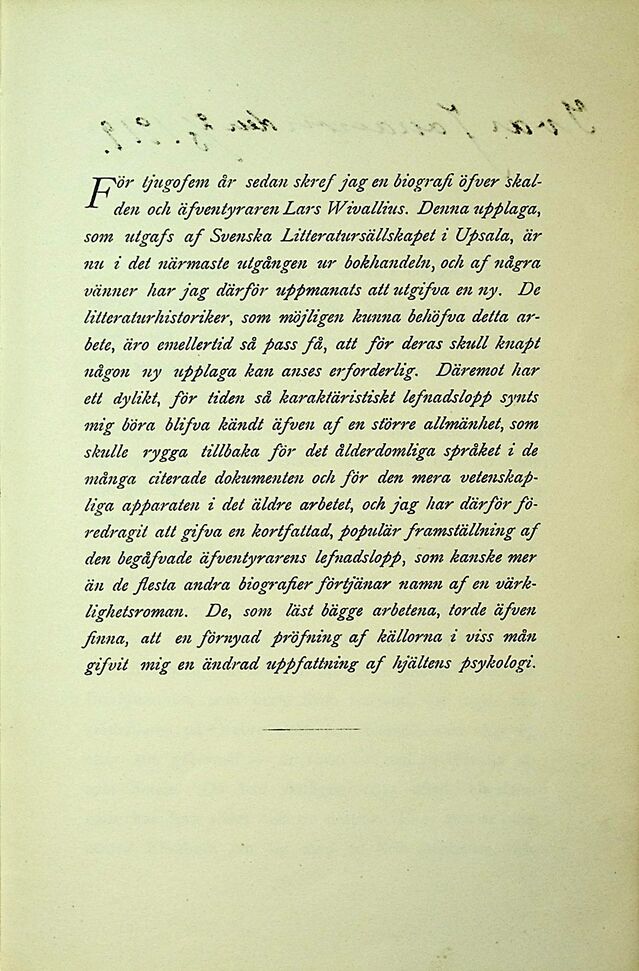 För tjugofem år sedan skref jag en biografi öfver skal-
den och äfventyraren Lars Wivallius. Denna upplaga,
som utgafs af Svenska Litteratursällskapet i Upsala, är
nu i det närmaste utgången ur bokhandeln, och af några
vänner har jag därför uppmanats att utgifva en ny. De
litteraturhistoriker, som möjligen kunna behöfva detta ar-
bete, äro emellertid så pass få, att för deras skull knapt
någon ny upplaga kan anses erforderlig. Däremot har
ett dylikt, för tiden så karaktäristiskt lefnadslopp synts
mig böra blifva kändt äfven af en större allmänhet, som
skulle rygga tillbaka för det ålderdomliga språket i de
många citerade dokumenten och för den mera vetenskap-
liga apparaten i det äldre arbetet, och jag har därför fö-
redragit att gifva en kortfattad, populär framställning af
den begåfvade äfventyrarens lefnadslopp, som kanske mer
än de flesta andra biografier förtjänar namn af en värk-
lighetsroman. De, som läst bägge arbetena, torde äfven
finna, att en förnyad pröfning af källorna i viss mån
gifvit mig en ändrad uppfattning af hjältens psykologi.